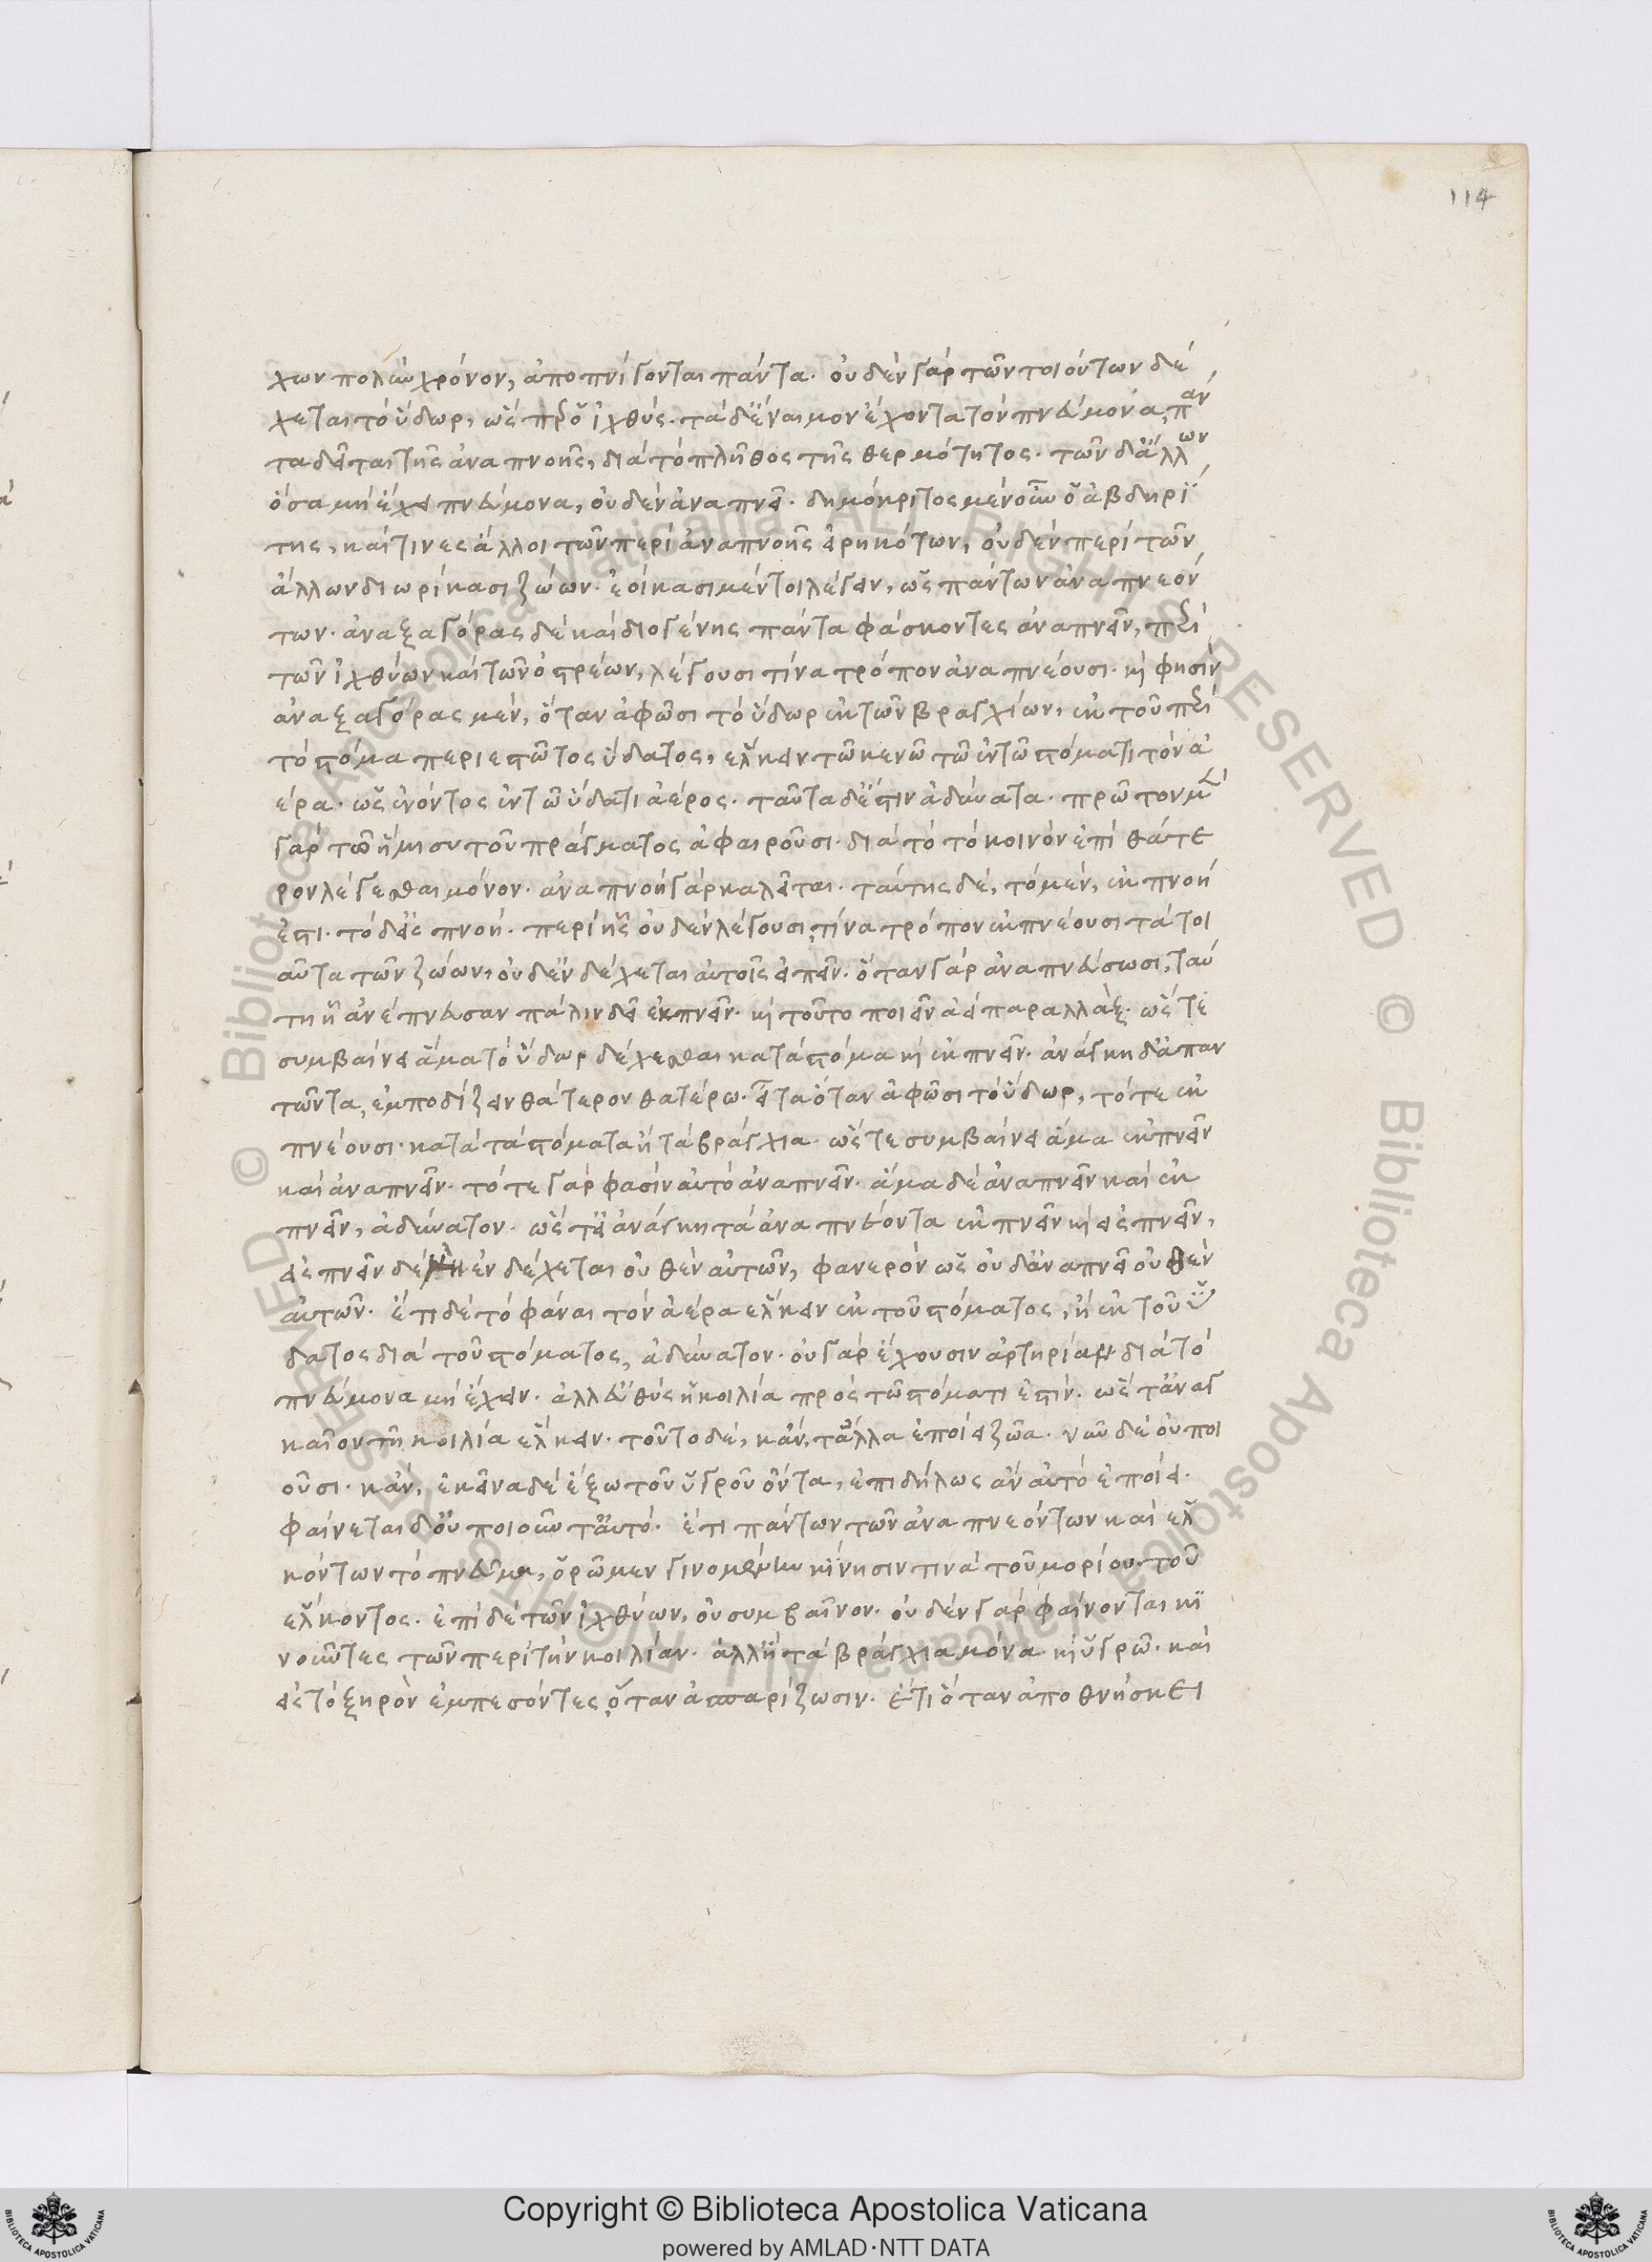 114
χων πολὺν χρόνον, ἀποπνίγονται πάντα. οὐδὲν γὰρ τῶν τοιούτων δέ
χεται τὸ ὕδωρ, ὥσπερ ὁ ἰχθύς. τὰ δ' ἔναιμον ἔχοντα τὸν πνεύμονα, πάν
τα δεῖται τῆς ἀναπνοῆς, διὰ τὸ πλῆθος τῆς θερμότητος. τῶν δ' ἄλλων
ὅσα μὴ ἔχει πνεύμονα, οὐδὲν ἀναπνεῖ. δημόκριτος μὲν οὖν ὁ ἀβδηρί
της, καί τινες ἄλλοι τῶν περὶ ἀναπνοῆς εἰρηκότων, οὐδὲν περὶ τῶν
ἄλλων διωρίκασι ζώων. ἐοίκασι μέντοι λέγειν, ὡς πάντων ἀναπνεόν
των. ἀναξαγόρας δὲ καὶ διογένης πάντα φάσκοντες ἀναπνεῖν, περὶ
τῶν ἰχθύων καὶ τῶν ὀστρέων, λέγουσι τίνα τρόπον ἀναπνέουσι. καὶ φησὶν
ἀναξαγόρας μέν, ὅταν ἀφῶσι τὸ ὕδωρ ἐκ τῶν βραγχίων, ἐκ τοῦ περὶ
τὸ στόμα περιεστῶτος ὕδατος, ἕλκειν τῶ κενῶ τῶ ἐν τῶ στόματι τὸν ἀ
έρα. ὡς ἐνόντος ἐν τῶ ὕδατι ἀέρος. ταῦτα δ' ἐστὶν ἀδύνατα. πρῶτον μὲν
γὰρ τὸ ἥμισυ τοῦ πράγματος ἀφαιροῦσι. διὰ τὸ τὸ κοινὸν ἐπὶ θάτε
ρον λέγεσθαι μόνον. ἀναπνοὴ γὰρ καλεῖται. ταύτης δὲ, τὸ μὲν, ἐκπνοή
ἐστι. τὸ δ' εἰσπνοή. περὶ ἧς οὐδὲν λέγουσι, τίνα τρόπον ἐκπνέουσι τὰ τοι
αῦτα τῶν ζώων, οὐδ' ἐνδέχεται αὐτοῖς εἰπεῖν. ὅταν γὰρ ἀναπνεύσωσι, ταύ
τη ἧ ἀνέπνευσαν πάλιν δεῖ ἐκπνεῖν. καὶ τοῦτο ποιεῖν ἀεὶ παραλλάξ. ὥστε
συμβαίνει ἅμα τὸ ὕδωρ δέχεσθαι κατὰ στόμα καὶ ἐκπνεῖν. ἀνάγκη δ' ἀπαν
τῶντα, ἐμποδίζειν θάτερον θατέρω. εἶτα ὅταν ἀφῶσι τὸ ὕδωρ, τότε ἐκ
πνέουσι. κατὰ τὰ στόματα ἢ τὰ βράγχια. ὥστε συμβαίνει ἅμα ἐκπνεῖν
καὶ ἀναπνεῖν. τότε γὰρ φασὶν αὐτὸ ἀναπνεῖν. ἅμα δὲ ἀναπνεῖν καὶ ἐκ
πνεῖν, ἀδύνατον. ὥστ' εἰ ἀνάγκη τὰ ἀναπνέοντα ἐκπνεῖν καὶ εἰσπνεῖν,
εἰσπνεῖν δὲ μὴ ἐνδέχεται οὐθὲν αὐτῶν, φανερὸν ὡς οὐδ' ἀναπνεῖ οὐθὲν
αὐτῶν. ἔτι δὲ τὸ φάναι τὸν ἀέρα ἕλκειν ἐκ τοῦ στόματος, ἢ ἐκ τοῦ ὕ
δατος διὰ τοῦ στόματος, ἀδύνατον. οὐ γὰρ ἔχουσιν ἀρτηρίαν διὰ τὸ
πνεύμονα μὴ ἔχειν. ἀλλ' εὐθὺς ἡ κοιλία πρὸς τῶ στόματι ἐστίν. ὥστ' ἀναγ
καῖον τῆ κοιλία ἕλκειν. τοῦτο δὲ, κἂν, τἆλλα ἐποίει ζῶα. νῦν δὲ οὐ ποι
οῦσι. κἂν, ἐκεῖνα δὲ ἔξω τοῦ ὑγροῦ ὄντα, ἐπιδήλως ἂν αὐτὸ ἐποίει.
φαίνεται δ' οὐ ποιοῦν ταὐτό. ἔτι πάντων τῶν ἀναπνεόντων καὶ ἑλ
κόντων τὸ πνεῦμα, ὁρῶμεν γινομένην κίνησιν τινὰ τοῦ μορίου τοῦ
ἕλκοντος. ἐπὶ δὲ τῶν ἰχθύων, οὐ συμβαῖνον. οὐδὲν γὰρ φαίνονται κι
νοῦντες τῶν περὶ τὴν κοιλίαν. ἀλλ' ἢ τὰ βράγχια μόνα καὶ ὑγρῶ. καὶ
εἰς τὸ ξηρὸν ἐμπεσόντες, ὅταν ἀσπαρίζωσιν. ἔτι ὅταν ἀποθνήσκει
Copyright © Biblioteca Apostolica Vaticana
powered by AMLAD·NTT DATA